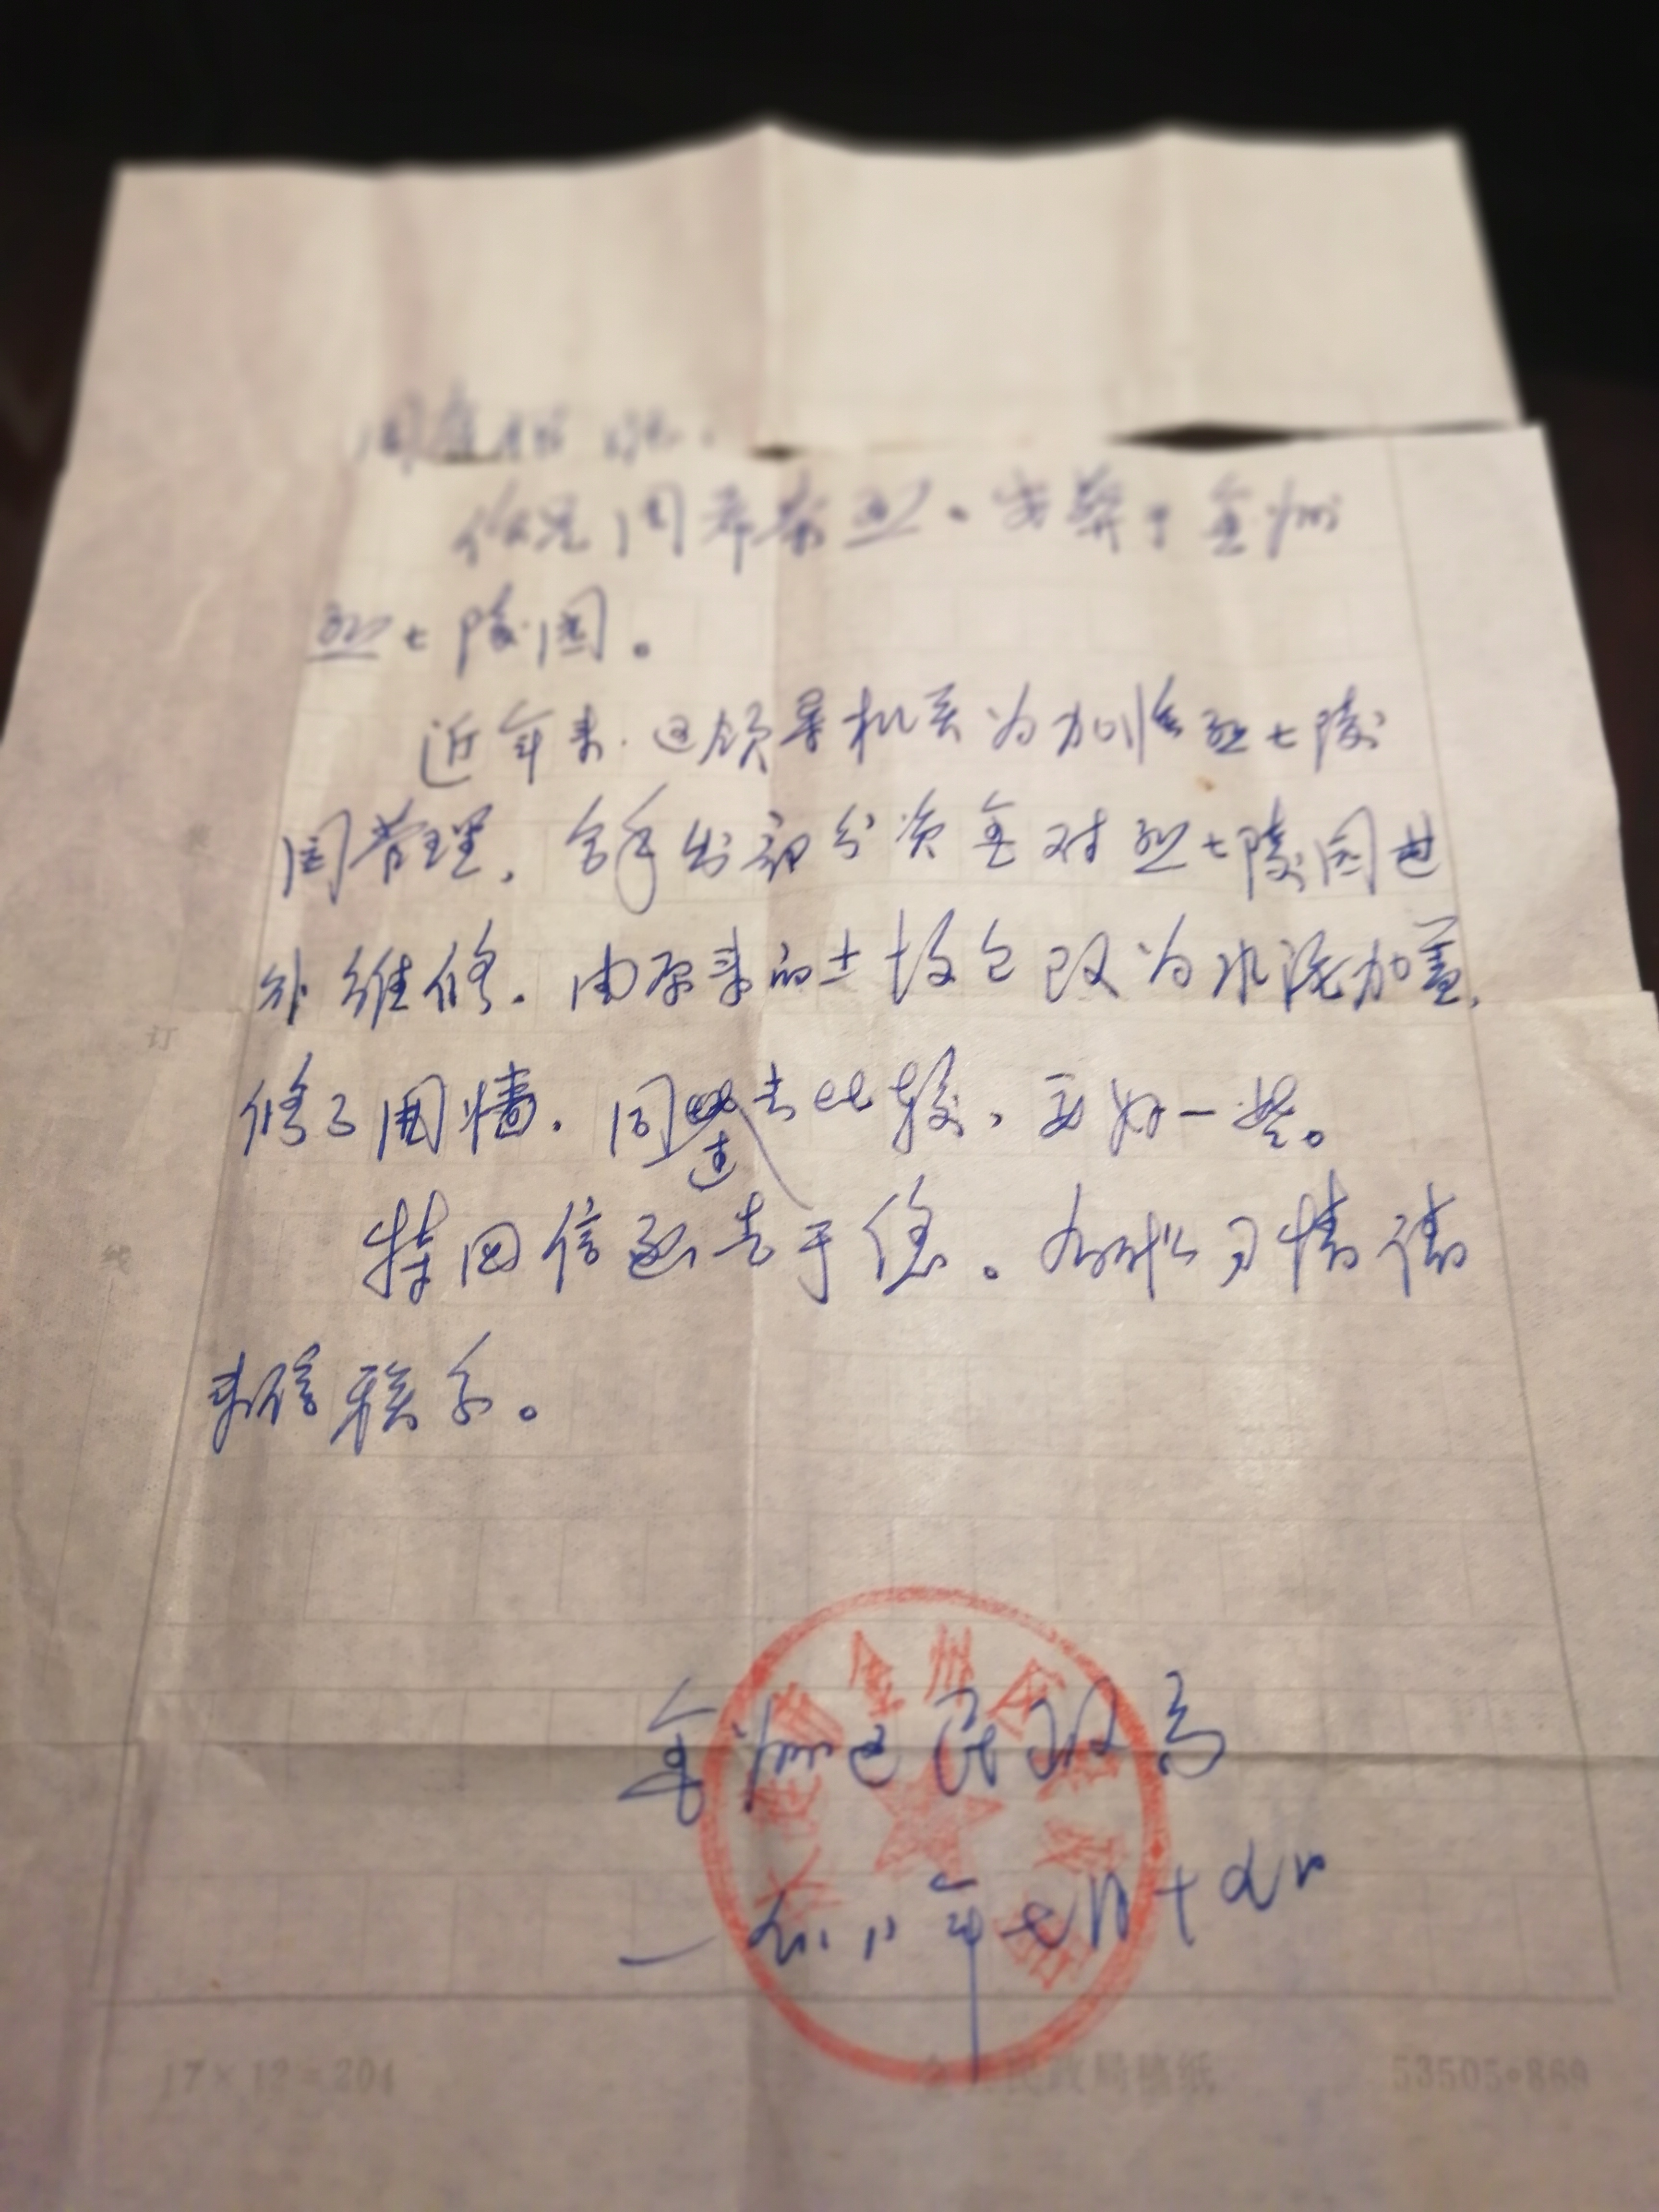 伯兄周希荣烈。安葬于金州
烈士陵园。
近年来.区领导机关为加强烈士陵
园管理,拿出部分资金对烈士陵园进
行维修.由原来的土坟包改为水泥加盖,
修了围墙.同过去比较,要好一些。
特回信函告于您。有什么事情请
来信联系。
金州区民政局
一九八八年七月十九日
订
线
17×12=204
民政局稿纸
53505·869